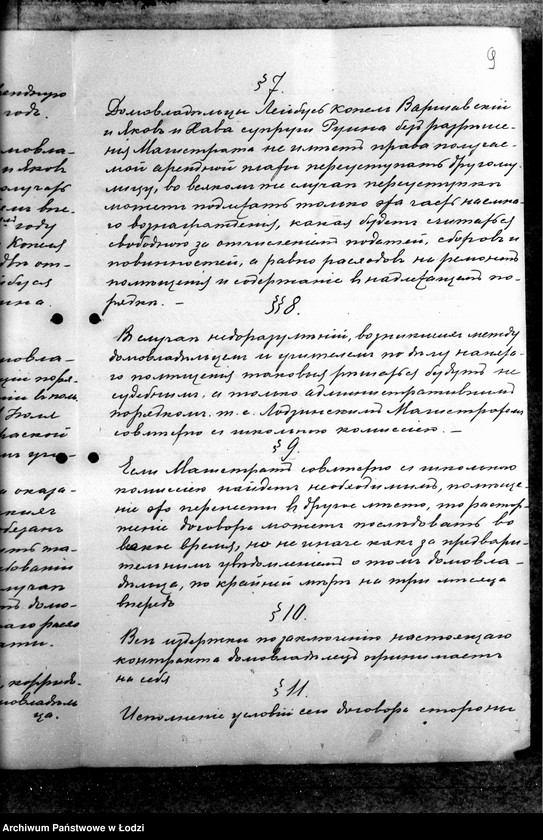 9
§ 7.
Домовладѣльцы Лейбусь Копель Варшавскій
и Яковъ и Хава супруги Румна безъ разрѣше-
нія Магистрата не имѣетъ права получае-
мой арендной платы переуступать другому
лицу, во всякомъ же случаѣ переуступки
можетъ подлежать только та часть наемна-
го вознагражденія, какая будетъ считаться
свободною за отчисленіемъ податей, сборовъ и
повинностей, а равно расходовъ на ремонтъ
помѣщенія и содержаніе въ надлежащемъ по-
рядкѣ. —
§§ 8.
Въ случаѣ недоразумѣній, возникшихъ между
домовладѣльцемъ и учителемъ по дѣлу наемна-
го помѣщенія таковыя рѣшаться будутъ не
судебнымъ, а только административнымъ
порядкомъ т. е. Лодзинскимъ Магистратомъ
совмѣстно съ школьною коммисіею. —
§ 9.
Если Магистратъ совмѣстно съ школьною
коммисіею найдетъ необходимымъ, помѣще-
ніе это перенести въ другое мѣсто, то растор-
женіе договора можетъ послѣдовать во
всякое время, но не иначе какъ за предвари-
тельнымъ увѣдомленіемъ о томъ домовла-
дѣльца, по крайней мѣрѣ на три мѣсяца
впередъ
§ 10.
Всѣ издержки по заключенію настоящаго
контракта домовладѣлецъ принимаетъ
на себя
§ 11.
Исполненіе условій сего договора стороны
ендную
годъ.
мовла-
и Яковъ
олучать
году
Копеля
дѣ от-
мовла-
оказа-
случаѣ
домо-
коррид-
мовладѣль
ца.
Archiwum Państwowe w Łodzi